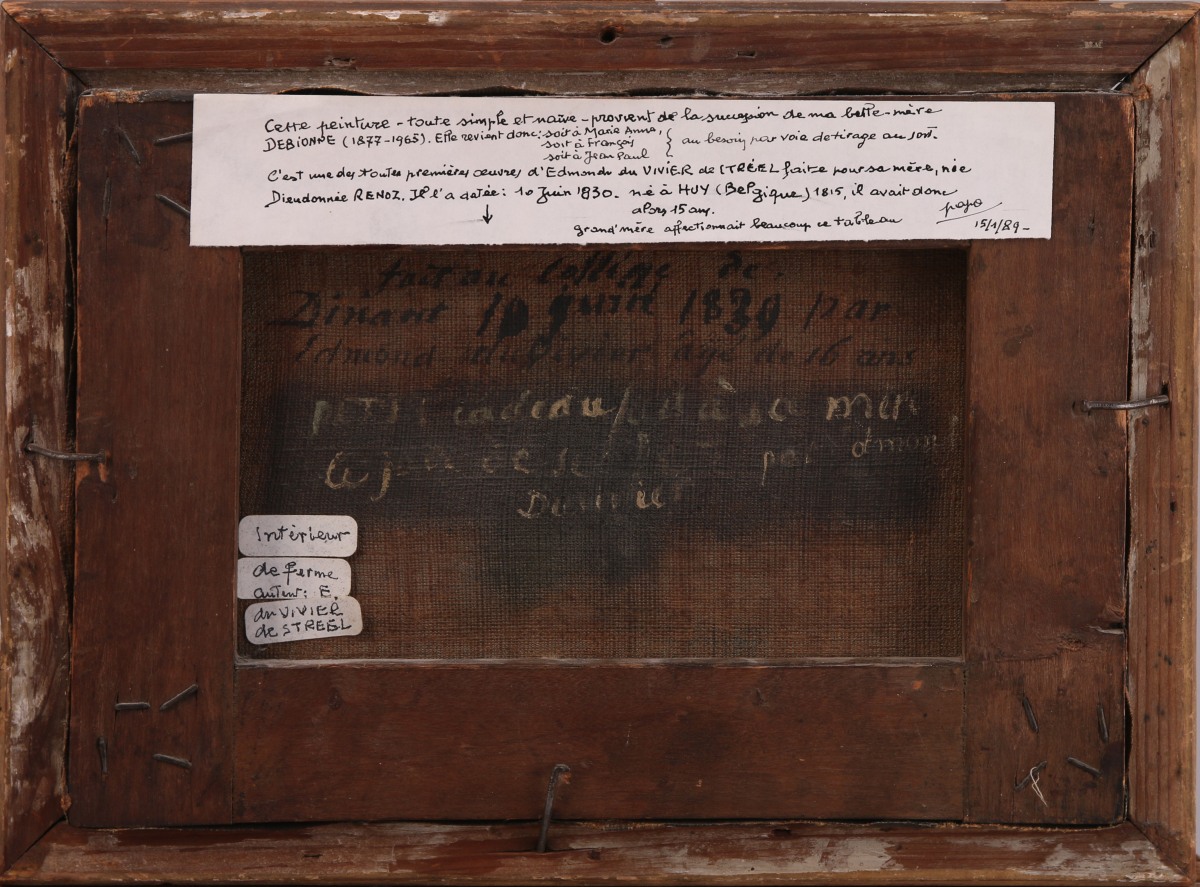 Cette peinture - toute simple et naïve - provient de la succession de ma belle-mère
DEBIONNE (1877-1965). Elle revient donc: soit à Marie Anne,
soit à François
soit à Jean Paul
au besoin par voie de tirage au sort.
C'est une des toutes premières œuvres d'Edmond du VIVIER de STRÉEL faite pour sa mère, née
Dieudonnée RENOZ. Il l'a datée: 10 Juin 1830. né à HUY (Belgique) 1815, il avait donc
alors 15 ans.
grand'mère affectionnait beaucoup ce tableau
papo
15/1/89-
fait au collège de
Dinant 10 juin 1830 par
Edmond duvivier âgé de 16 ans
petit cadeau à sa mère
le par Edmond
Duvivier
Intérieur
de ferme
auteur: E.
du VIVIER
de STREEL